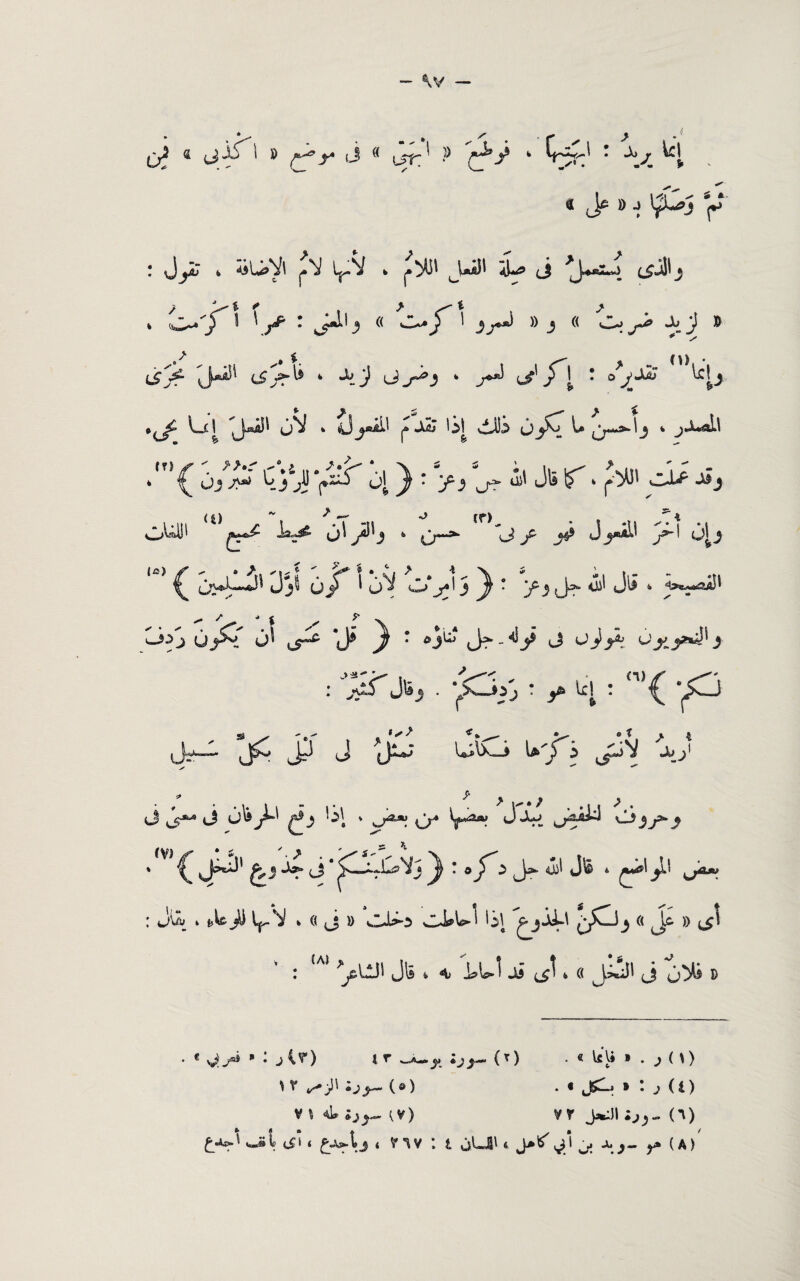 — ٩٧ —
إِنما يريد : اجتنِبها ، فوضَعَ « اجتنِي » في موضع « اتركي » فمن
ثَمَّ وَصَلها بـ « على »
والذي يُستعملُ في صلة الفعل اللامُ ، لأنها لامُ الإضافة ، تقول :
« لزيدٍ ضربتُ » و « لعمرو أكرمتُ » والمعنى : عمراً أكرمتُ ،
وإنما(١) تقديره : إكرامي لعمرو ، وضربي لزيدٍ ، فأجرى الفعلَ مُجرى
المصدر ، وأحسن ما يكون ذلك إذا تقدَّم المفعولُ ، لأن الفعلَ إنما يجيء
وقد عملت اللامُ ، كما قال الله عزَّ وجلَّ : ( إن كُنتُم للرُّؤيا تَعبُرون )(٢) .
وإن أُخِّر المفعولُ فهو عربيّ(٣) حسن ، والقرآن محيط بجميع(٤) اللغات
الفصيحة ، قال الله جلَّ وعزَّ : ( وأُمِرتُ لأن أكون أوّلَ المسلمين )(٥)
والنحويون يقولون في قوله جلّ ثناؤه : ( قُل عسى أن يكونَ رَدِفَ
لكم )(٦) : إنما هو : رَدِفَكم . وقال كثيّر :
أُريدُ لأنسى ذكرَها فكأنما تَمثَّلُ لي ليلى بكلّ سبيلِ
وحروفُ الخفض يُبدَلُ بعضُها من بعض ، إذا وقع الحرفان في معنى في
بعض المواضع ، قال الله جلَّ ذكره : ( ولأُصلِّبَنَّكُم في جذوع النخل )(٧) ،
أي « على » ولكن الجذوعَ إذا أحاطت دخلت « في » ، لأنها للوعاء ، يقال :
« فلانٌ في النخل » ، أي قد أحاط به ، قال الشاعر(٨) :
(١) ر . « فإنما » .
(٢) سورة يوسف ٤٣
(٣) ر : « فعربي » .
(٤) ر : « بكل » .
(٥) سورة الزمر ١٢
(٦) سورة النمل ٧٢
(٧) سورة طه ٧١
(٨) هو سويد بن أبي كاهل ، اللسان ٤ : ٢٦٧ ، وبأجدع ، أي بأنف أجدع